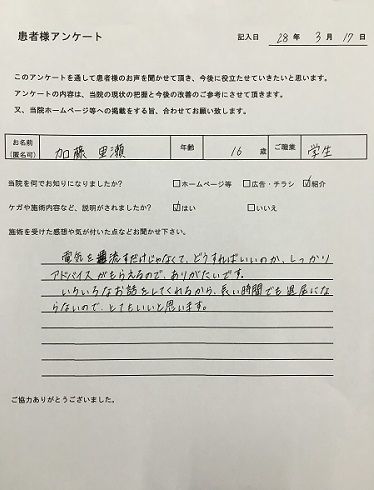 患者様アンケート 記入日 28年 3月 17日
このアンケートを通して患者様のお声を聞かせて頂き、今後に役立たせていきたいと思います。
アンケートの内容は、当院の現状の把握と今後の改善のご参考にさせて頂きます。
又、当院ホームページ等への掲載をする旨、合わせてお願い致します。
お名前 (匿名可) 加藤 里瀬 年齢 16 歳 ご職業 学生
当院を何でお知りになりましたか? □ホームページ等 □広告・チラシ ☑紹介
ケガや施術内容など、説明がされましたか? ☑はい □いいえ
施術を受けた感想や気が付いた点などお聞かせ下さい。
電気を流すだけじゃなくて、どうすればいいのか、しっかり
アドバイスがもらえるので、ありがたいです。
いろいろなお話をしてくれるから、長い時間でも退屈にな
らないので、とてもいいと思います。
ご協力ありがとうございました。